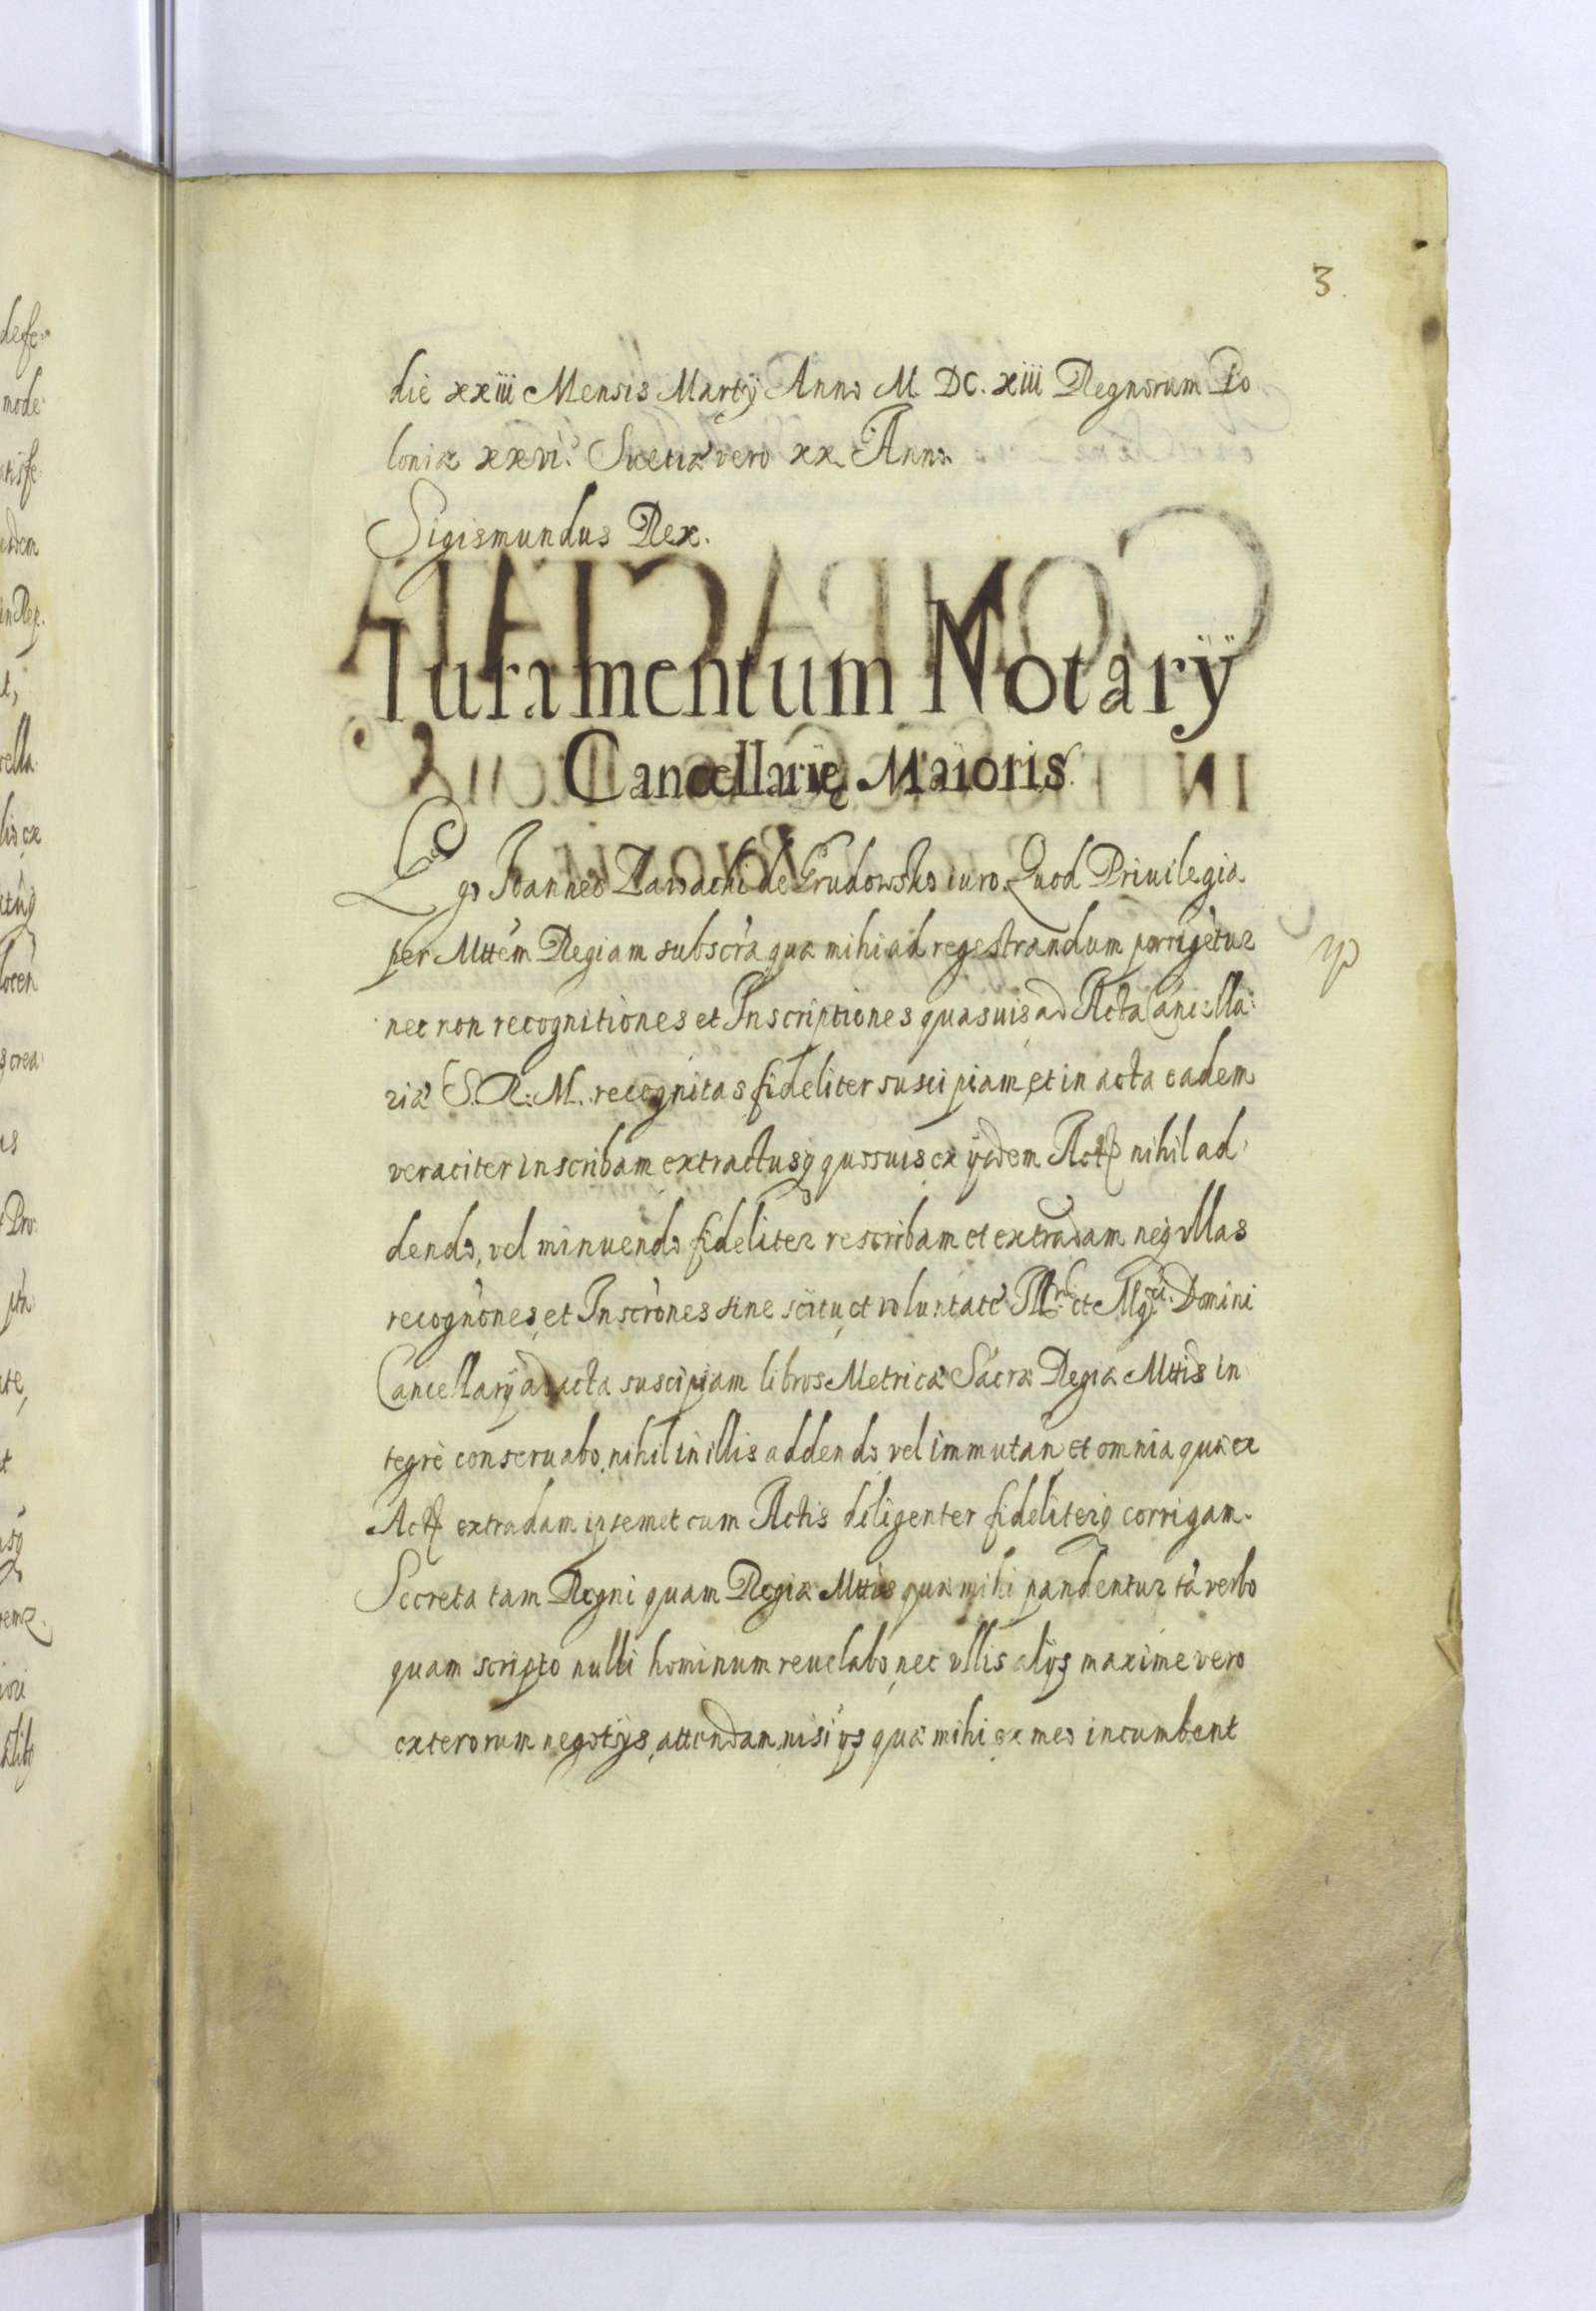 3.
die xxiii Mensis Martÿ Anno M. DC. xiii Regnorum Po
loniæ xxvi. Suetiæ vero xx Anno.
Sigismundus Rex.
Iuramentum Notarÿ
Cancellarię Maioris.
Ego Ioannes Zawacki de Grudowsko iuro. Quod Priuilegia
per Mttem Regiam subscra quæ mihi ad regestrandum porrigetur
nec non recognitiones et Inscriptiones quasuis ad Acta Cancella:
riæ S. R. M. recognitas fideliter suscipiam, et in acta eadem
veraciter inscribam, extractusq quosuis, ex ÿsdem Actis nihil ad
dendo, vel minuendo fideliter rescribam et extradam neq vllas
recognones, et Inscrones sine scitu, et voluntate Illris et Mgci. Domini
Cancellarÿ ad acta suscipiam libros Metricæ Sacræ Regiæ Mttis in
tegre conseruabo, nihil in illis addendo, vel immutan et omnia quæ ex
Actis extradam ipsemet cum Actis diligenter fideliterq corrigam.
Secreta tam Regni quam Regiæ Mttis quæ mihi pandentur tā verbo
quam scripto nulli hominum reuelabo, nec vllis alÿs maxime vero
exterorum negotÿs, attendam, nisi ÿs quæ mihi ex meo incumbent